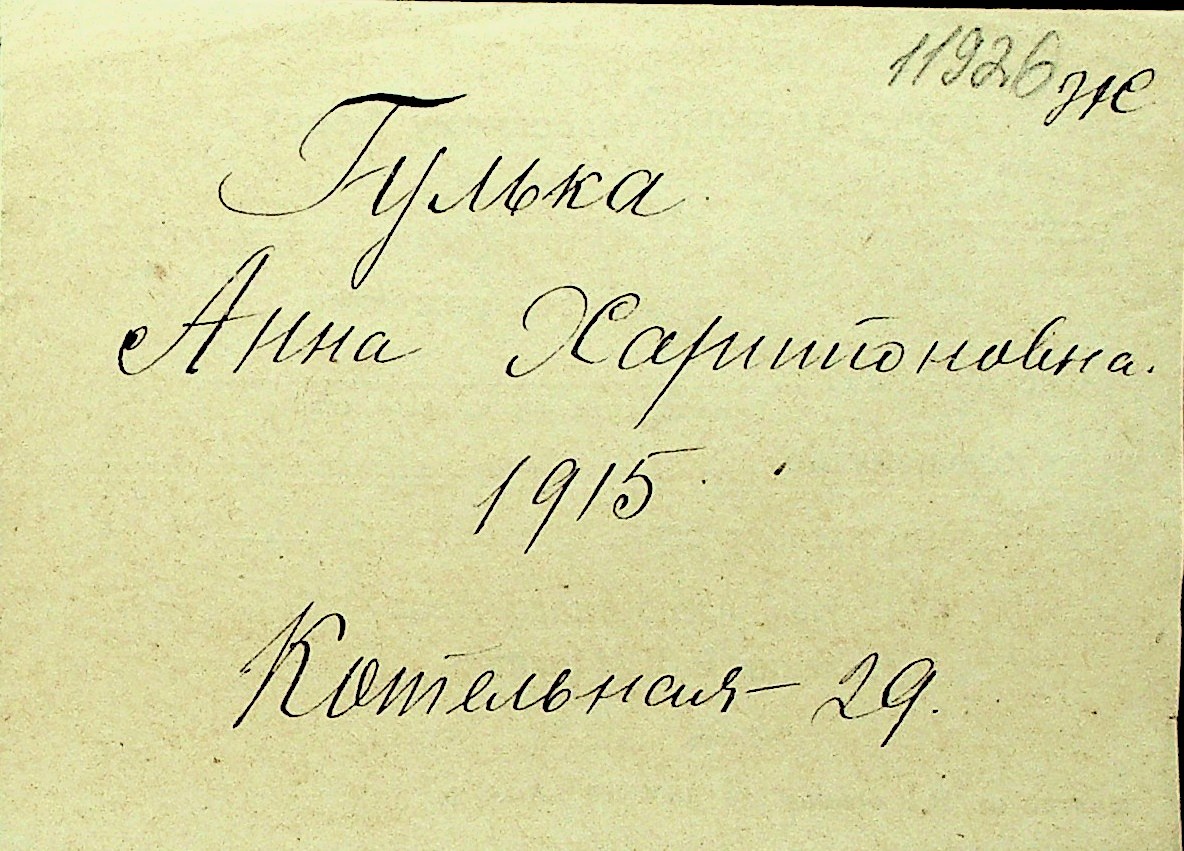 11926 ж
Гулька
Анна Харитоновна.
1915
Котельная – 29.